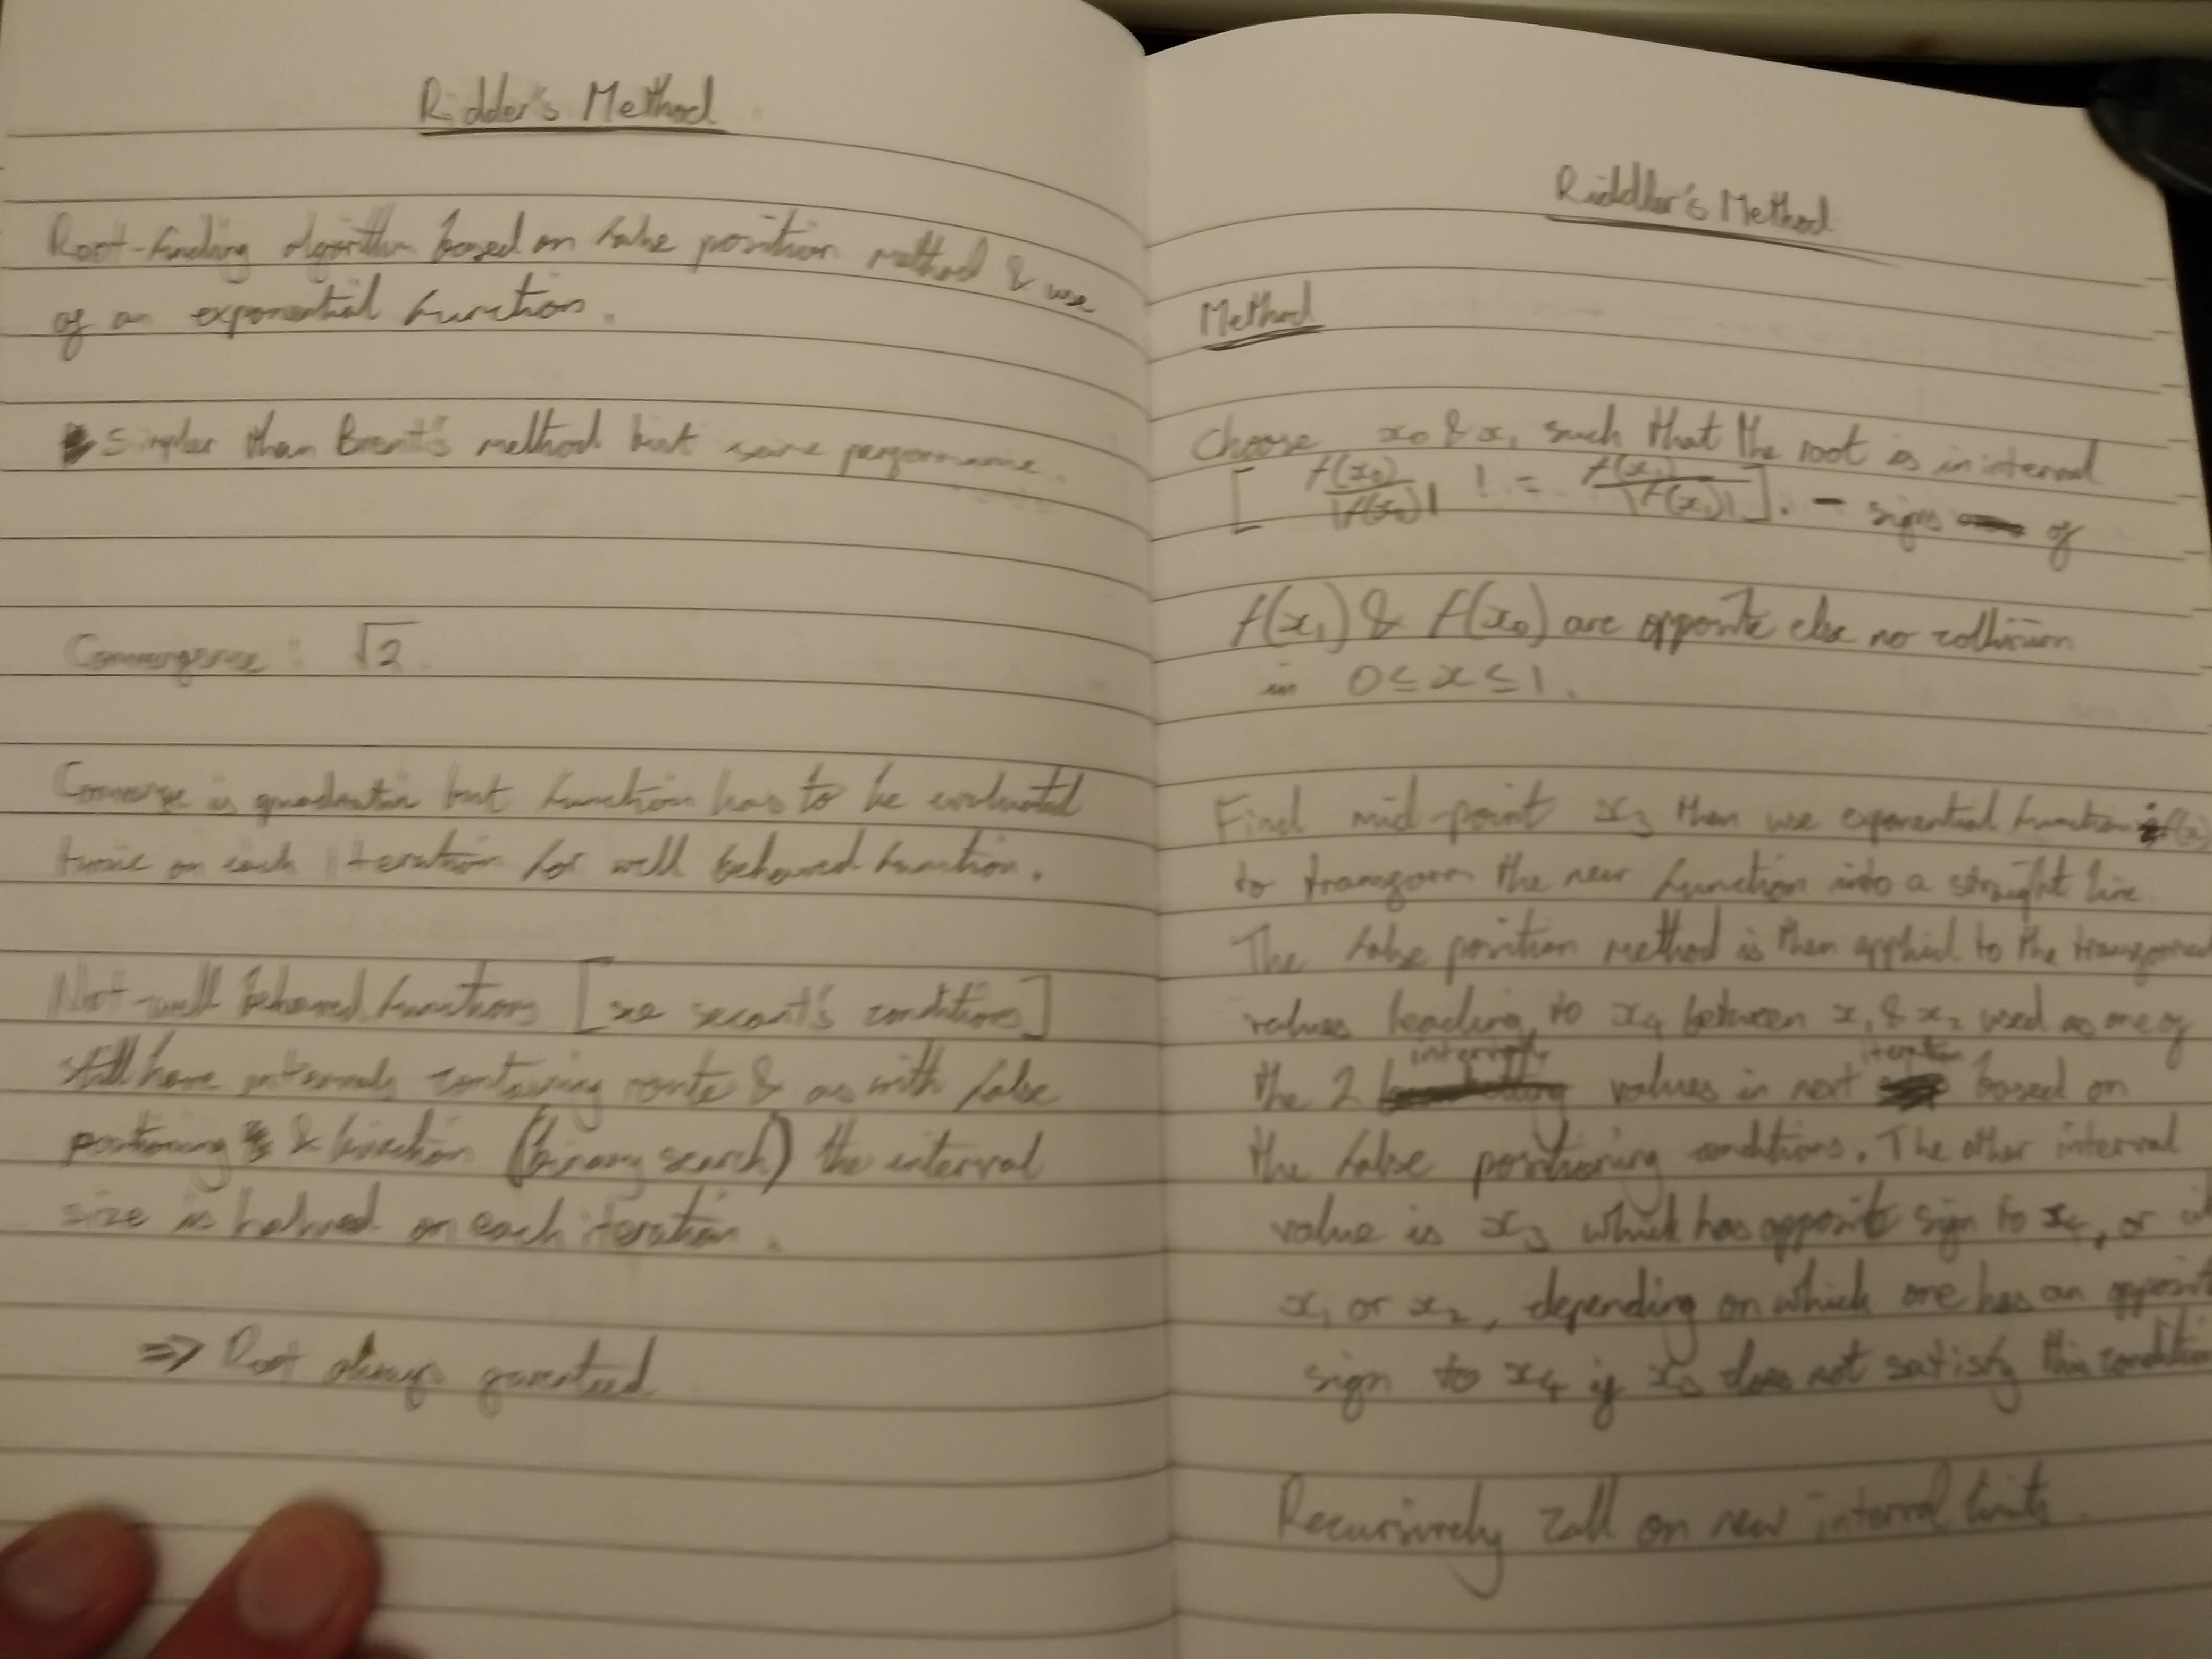 Ridder's Method
Root-finding algorithm based on false position method & use
of an exponential function.
Simpler than Brent's method but same performance.
Convergence: √2
Converge is quadratic but function has to be evaluated
twice on each iteration for well behaved function.
Not-well behaved functions [see secant's conditions]
still have intervals containing route & as with false
positioning & bisection (binary search) the interval
size is halved on each iteration.
=> Root always
Riddler's Method
Method
Choose x₀ & x₁ such that the root is in interval
[ f(x₀)/|f(x₀)| != f(x₁)/|f(x₁)| ]. - signs of
f(x₁) & f(x₀) are opposite else no collision
in 0≤x≤1.
Find mid-point x₃ then use exponential function
to transform the new function into a straight line
The false position method is then applied to the transformed
values leading to x₄ between x₁ & x₂ used as one of
the 2 values in next iteration based on
the false positioning conditions. The other interval
value is x₃ which has opposite sign to x₄, or
x₁ or x₂, depending on which one has an opposit
sign to x₄ if x₃ does not satisfy this condition
Recursively call on new interval limits.